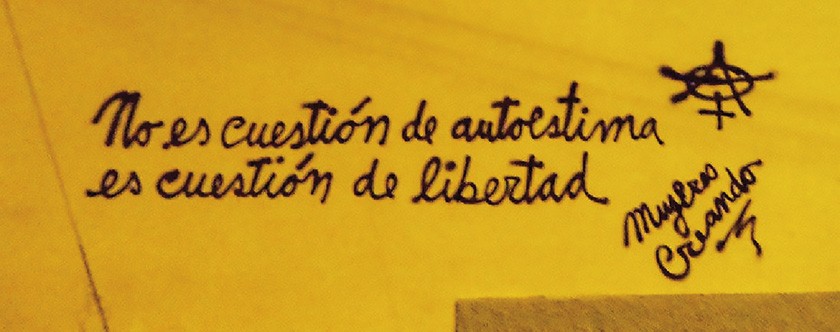 No es cuestión de autoestima
es cuestión de libertad
Mujeres
Creando